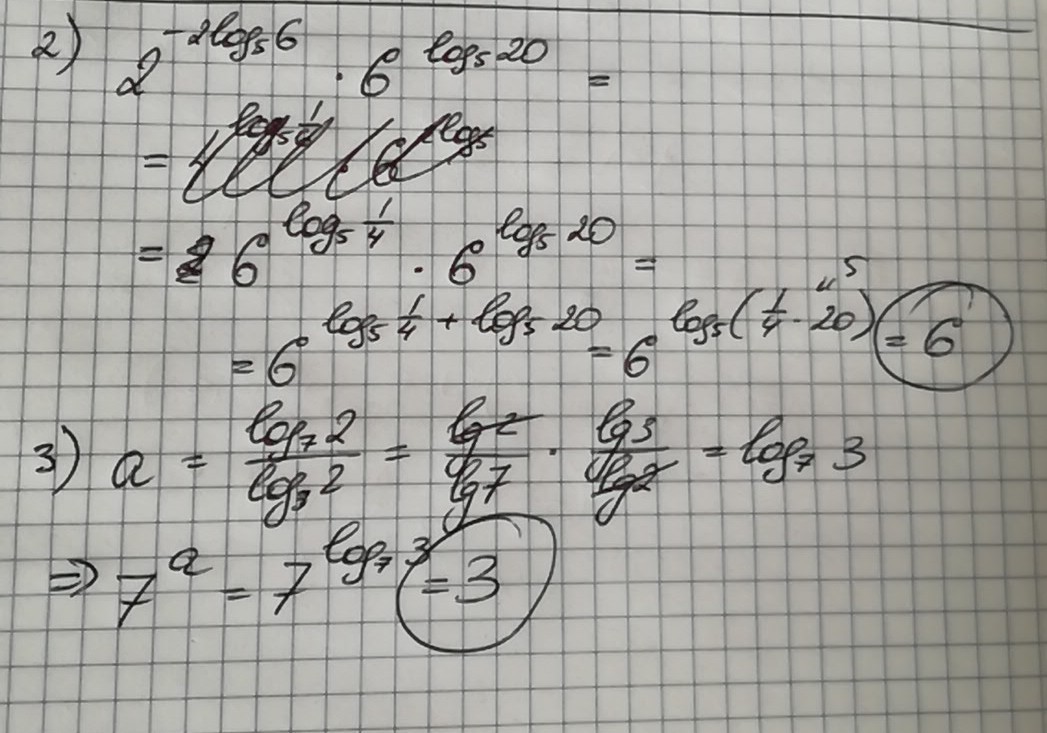 2) 2^{-2log₅6} · 6^{log₅20} =
=
= 6^{log₅ 1/4} · 6^{log₅ 20} =
= 6^{log₅ 1/4 + log₅ 20} = 6^{log₅(1/4 · 20)} = 6
" 5
3) a = log₇2 / log₃2 = lg2 / lg7 · lg3 / lg2 = log₇ 3
⇒ 7^a = 7^{log₇3} = 3